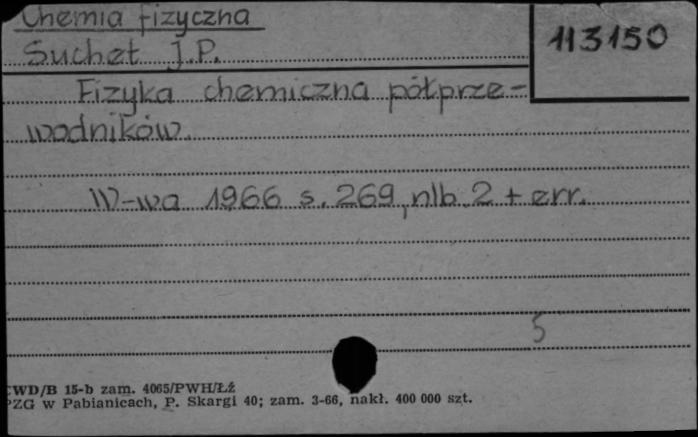 Chemia fizyczna
113150
Suchet J.P.
Fizyka chemiczna półprze-
wodników.
W-wa 1966 s. 269, nlb. 2 + err.
5
CWD/B 15-b zam. 4065/PWH/Łź
PZG w Pabianicach, P. Skargi 40; zam. 3-66, nakł. 400 000 szt.